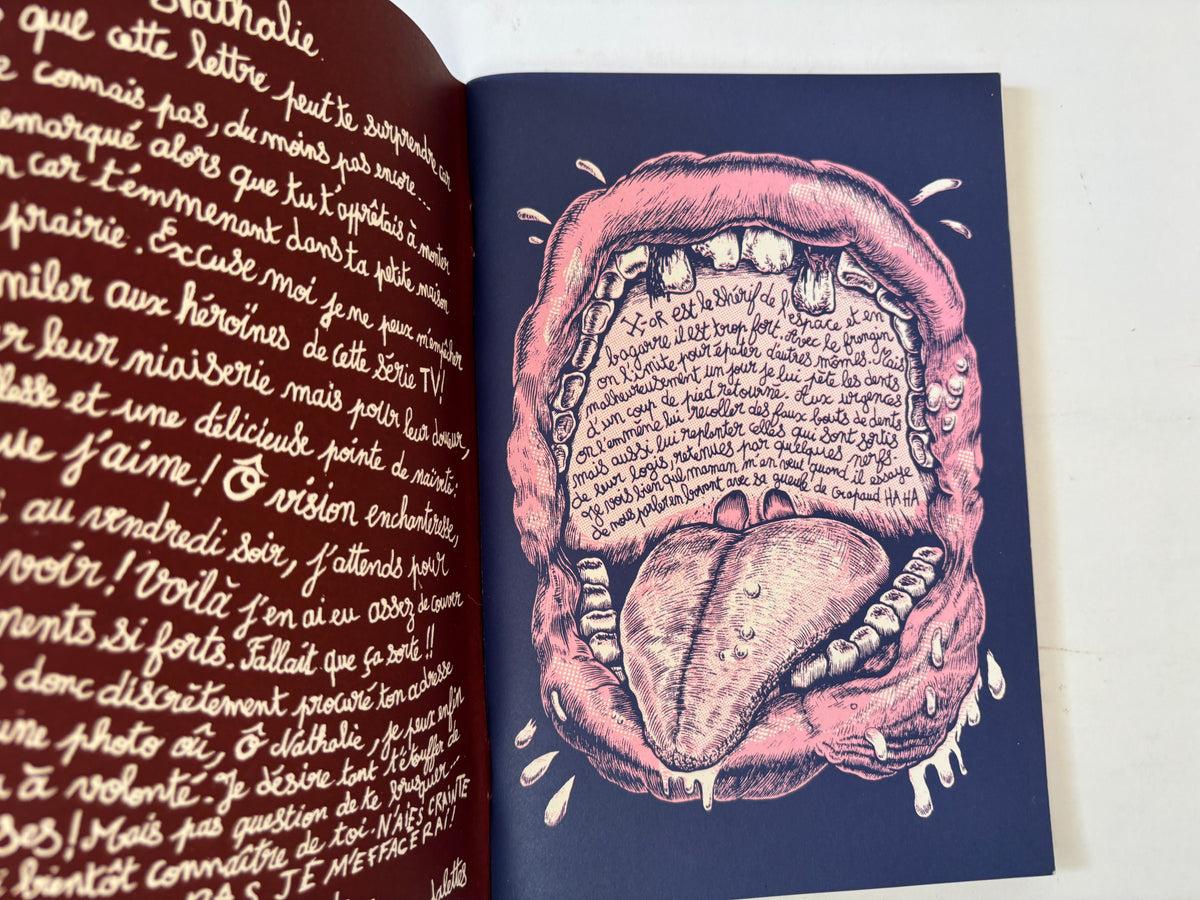 Nathalie.
que cette lettre peut te surprendre car
connais pas, du moins pas encore...
emarqué alors que tu t'apprêtais à monter
n car t'emmenant dans ta petite maison
prairie. Excuse moi je ne peux m'empêcher
miler aux héroïnes de cette série TV!
r leur niaiserie mais pour leur douceur,
lesse et une délicieuse pointe de naïveté:
ue j'aime! Ô vision enchanteresse,
i au vendredi soir, j'attends pour
voir! Voilà j'en ai eu assez de couver
ments si forts. Fallait que ça sorte!!
s donc discrètement procuré ton adresse
une photo où, Ô Nathalie, je peux enfin
à volonté. Je désire tant t'étouffer de
ses! Mais pas question de te brusquer...
i bientôt connaître de toi. N'AIES CRAINTE
PAS JE M'EFFACERAI!
alettes
X-OR est le shérif de l'espace et en
bagarre il est trop fort. Avec le frangin
on l'imite pour épater d'autres mômes. Mais
malheureusement un jour je lui pète les dents
d'un coup de pied retourné. Aux urgences
on l'emmène lui recoller des faux bouts de dents
mais aussi lui replanter celles qui sont sorties
de leur logis, retenues par quelques nerfs.
Je vois bien que maman m'en veut quand il essaye
de nous parler en bavant avec sa gueule de crapaud HA HA